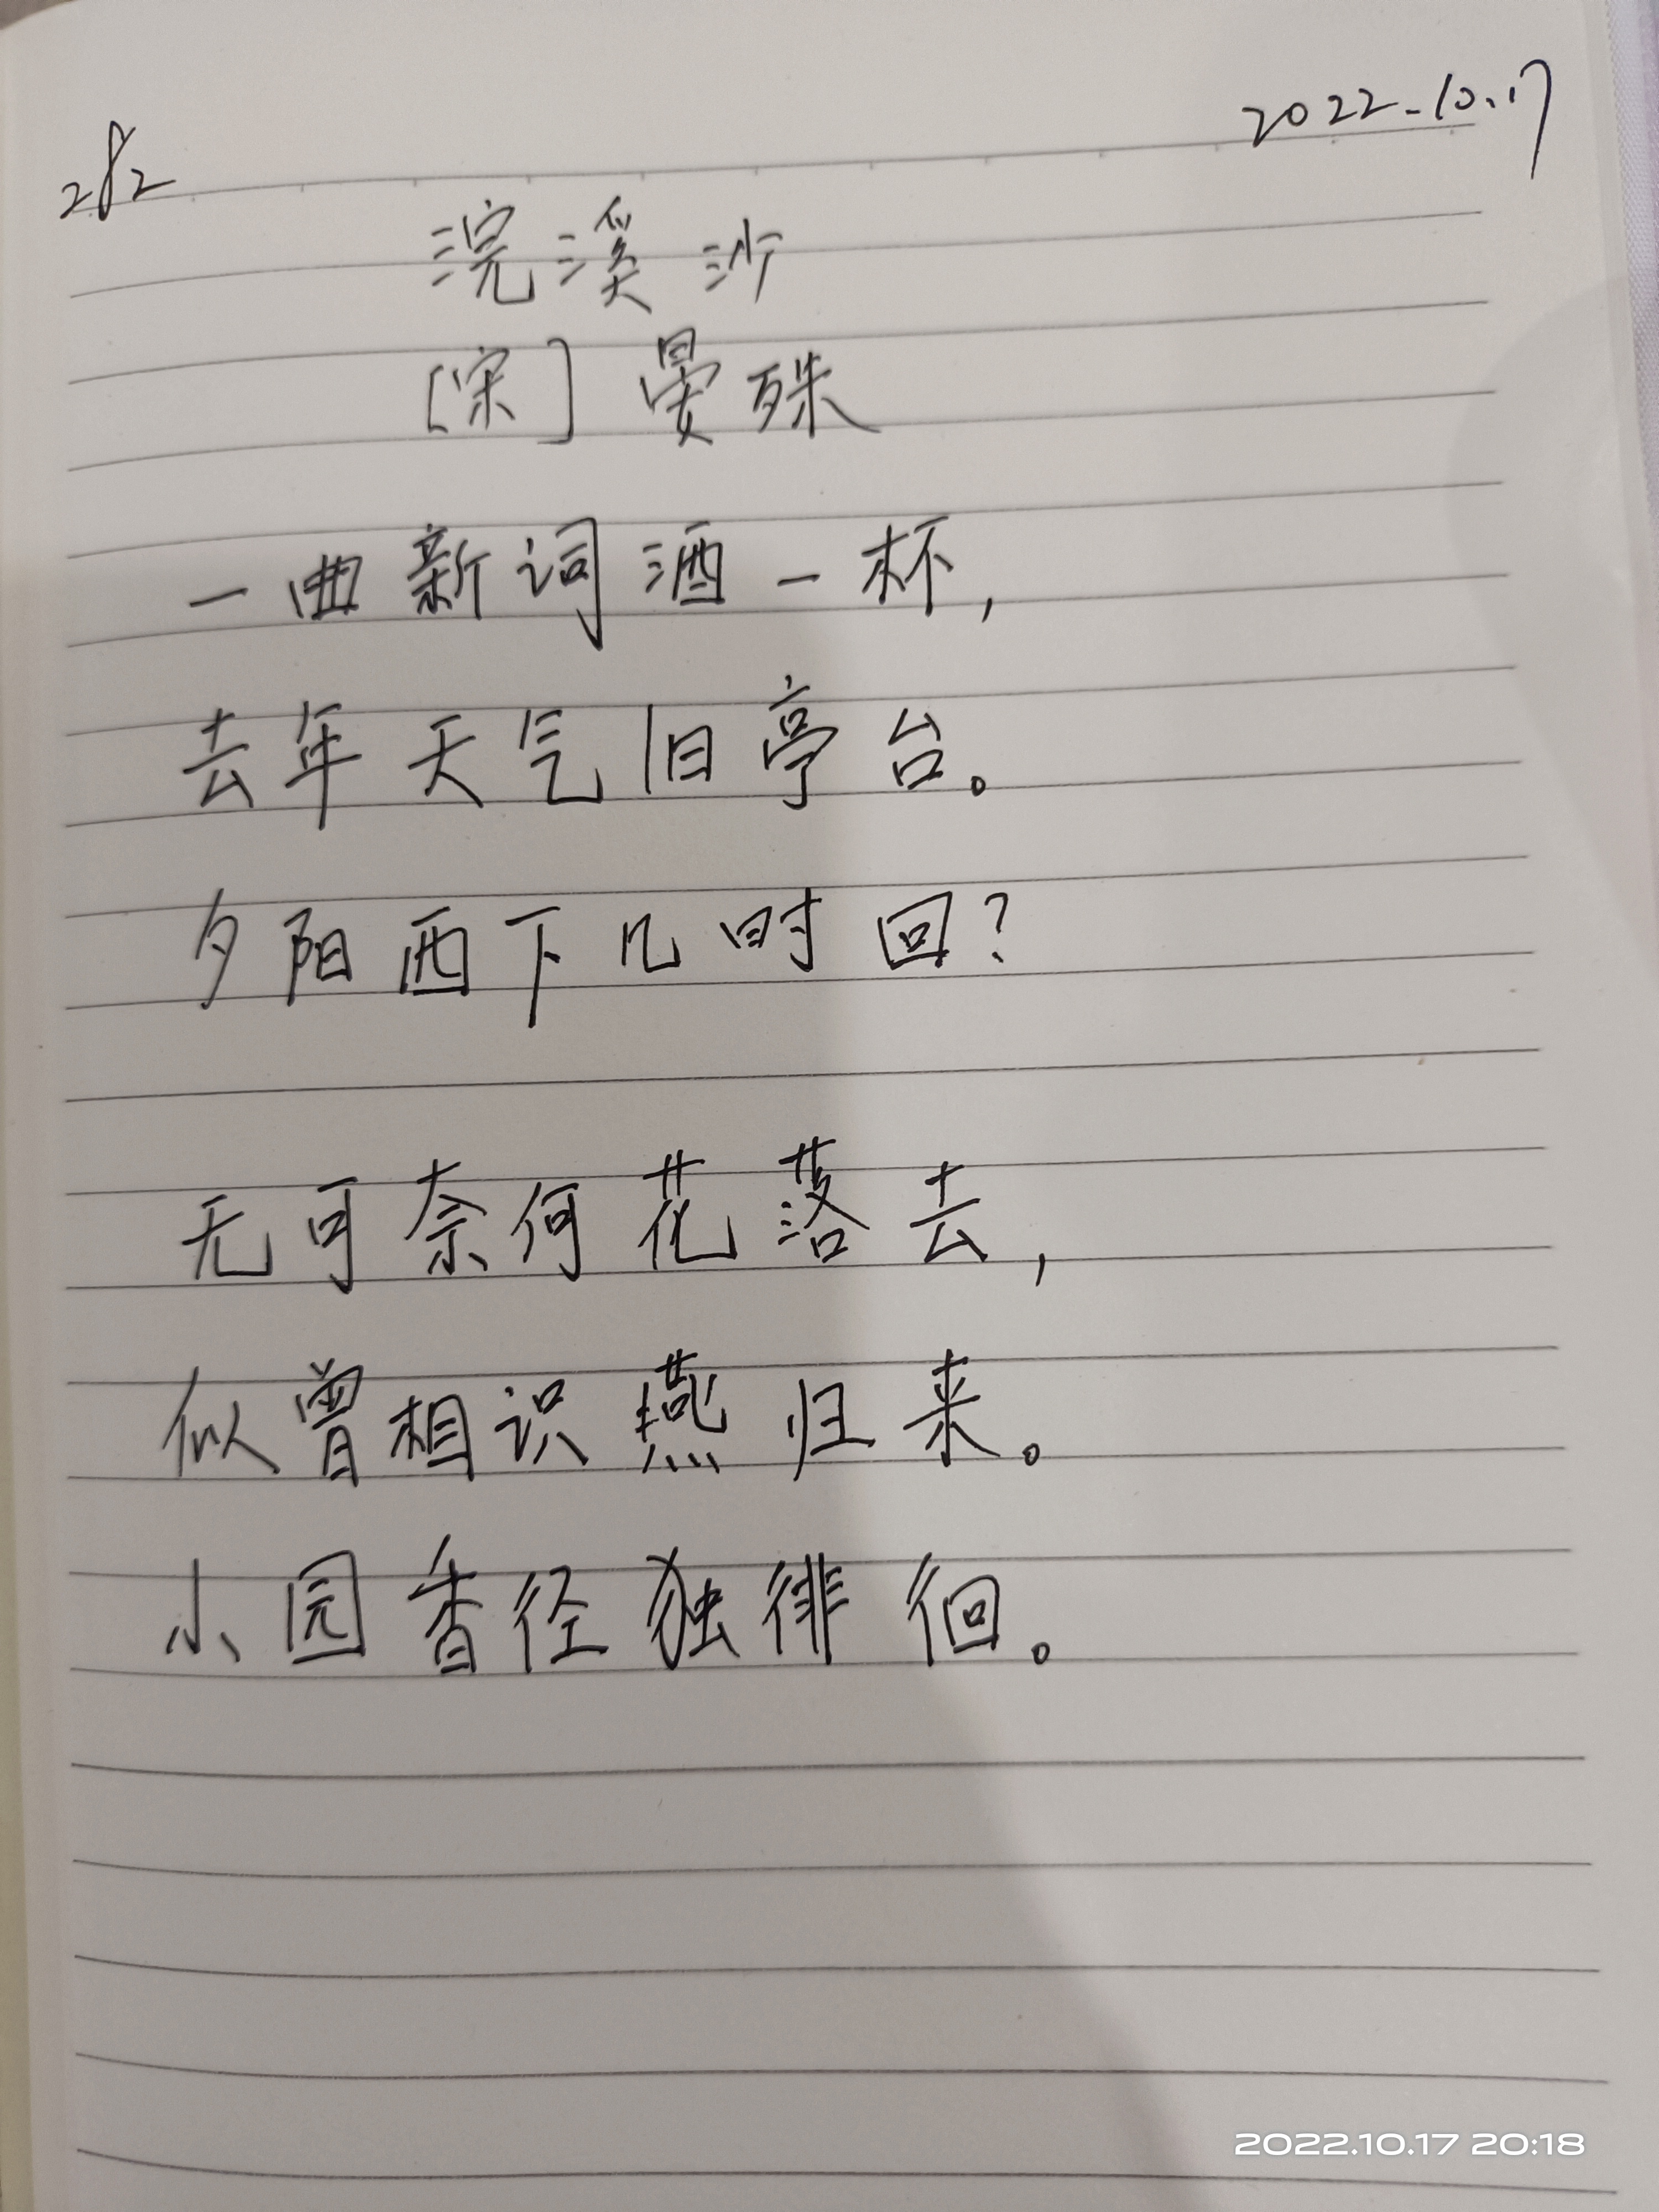 282
2022.10.17
浣溪沙
[宋] 晏殊
一曲新词酒一杯,
去年天气旧亭台。
夕阳西下几时回?
无可奈何花落去,
似曾相识燕归来。
小园香径独徘徊。
2022.10.17 20:18